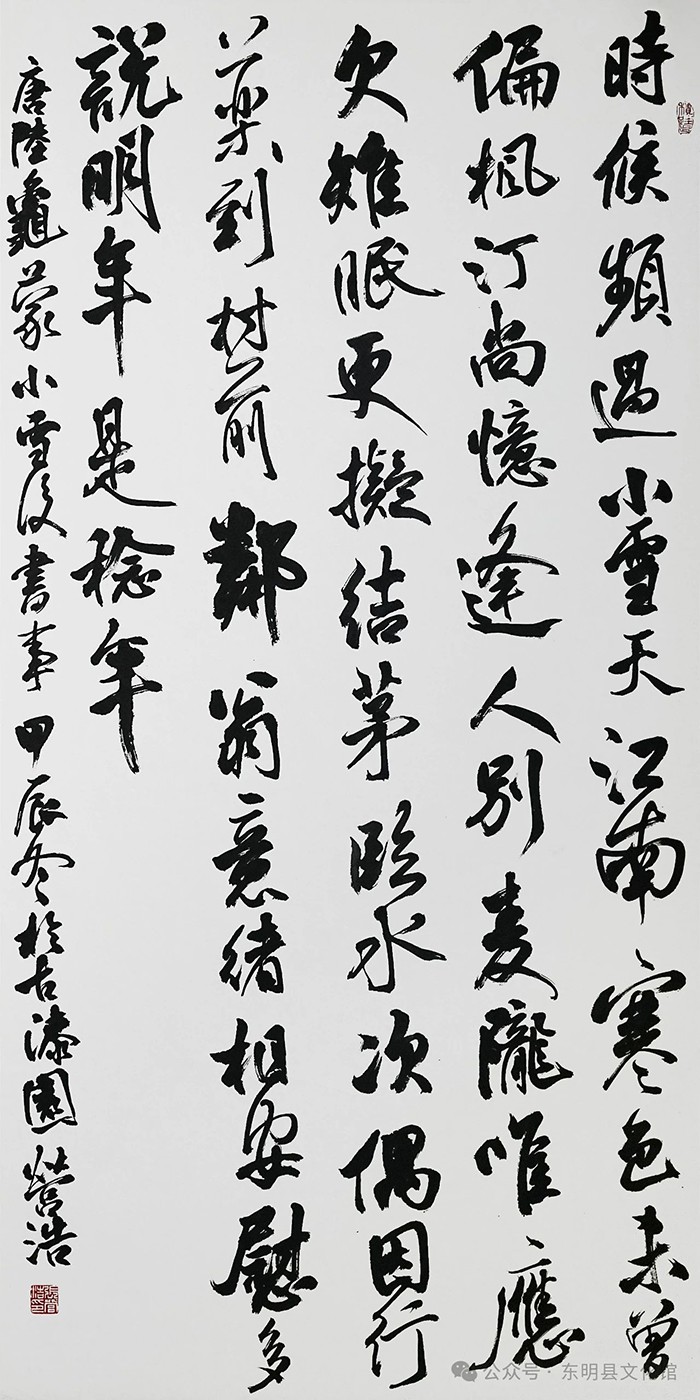 時候頻過小雪天江南寒色未曾
偏楓汀尚憶逢人別麦隴唯應
欠雉眠更擬結茅臨水次偶因行
藥到村前鄰翁意緒相安慰多
説明年是稔年
唐陸龜蒙小雪後書事甲辰冬於古漆園營浩
公众号·东明县文化馆